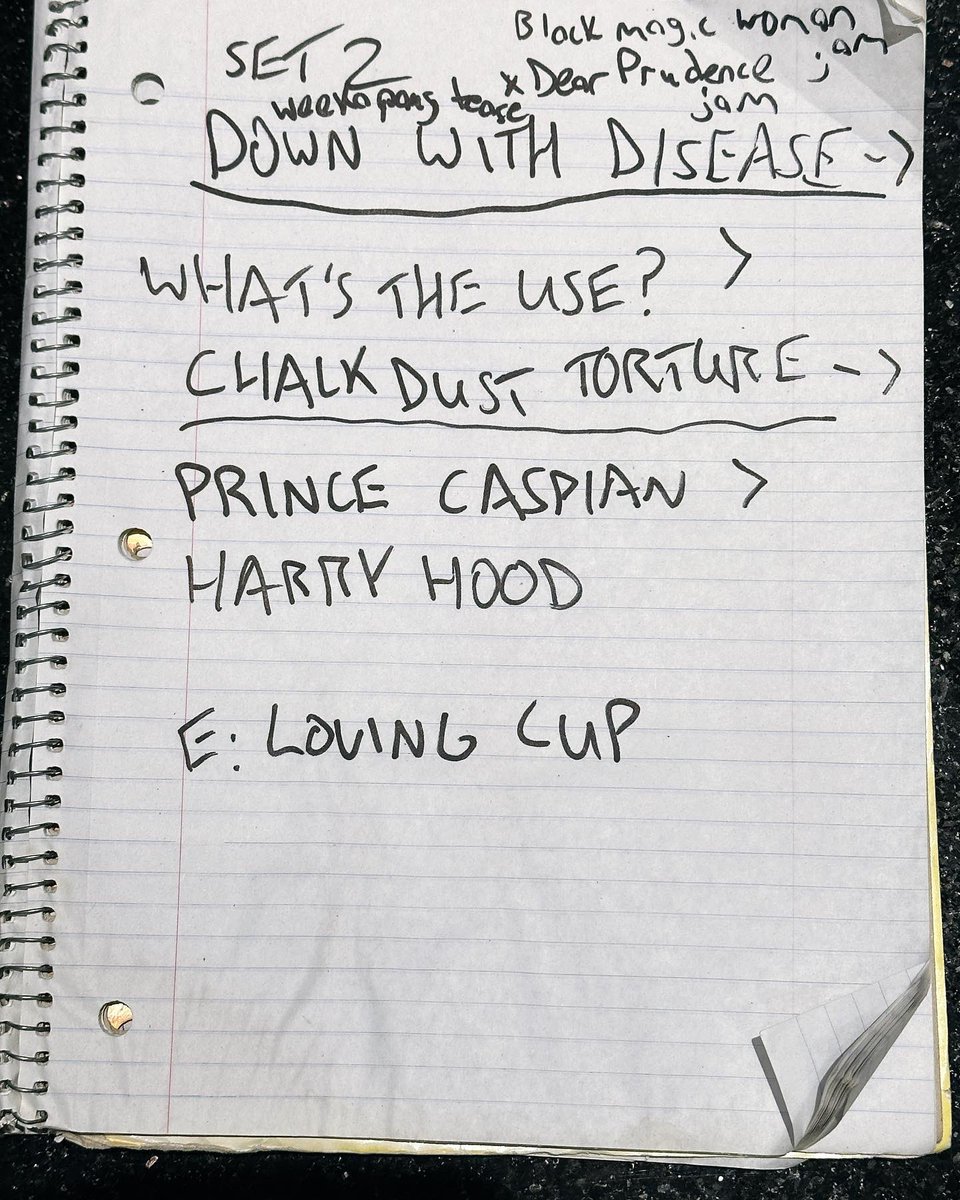 Black magic woman
jam
SET 2
x Dear Prudence
jam
weekapaug tease
DOWN WITH DISEASE ->
WHAT'S THE USE? >
CHALK DUST TORTURE ->
PRINCE CASPIAN >
HARRY HOOD
E: LOVING CUP